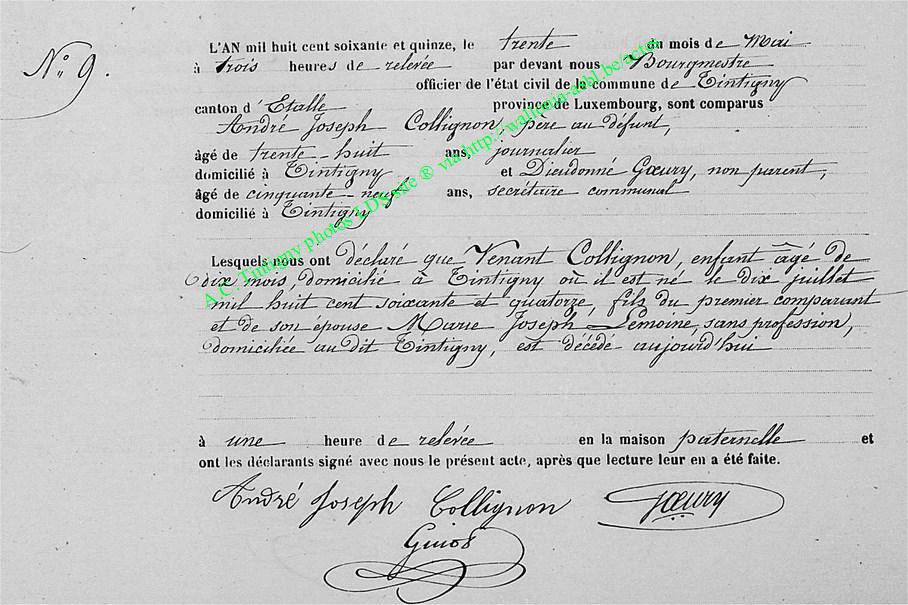 N.º 9.
L'AN mil huit cent soixante et quinze, le trente du mois de Mai
à trois heures de relevée par devant nous Bourgmestre
officier de l'état civil de la commune de Tintigny
canton d'Etalle province de Luxembourg, sont comparus
André Joseph Collignon, père au défunt,
âgé de trente-huit ans, journalier
domicilié à Tintigny et Dieudonné Gœury, non parent,
âgé de cinquante neuf ans, secrétaire communal
domicilié à Tintigny
Lesquels nous ont déclaré que Venant Collignon, enfant âgé de
dix mois, domicilié à Tintigny où il est né le dix juillet
mil huit cent soixante et quatorze, fils du premier comparant
et de son épouse Marie Joseph Lemoine, sans profession,
domiciliée au dit Tintigny, est décédé aujourd'hui
à une heure de relevée en la maison paternelle et
ont les déclarants signé avec nous le présent acte, après que lecture leur en a été faite.
André Joseph Collignon Gœury
A.C. Tintigny photos LDS site ® via http://walhous-asbl.be/actes